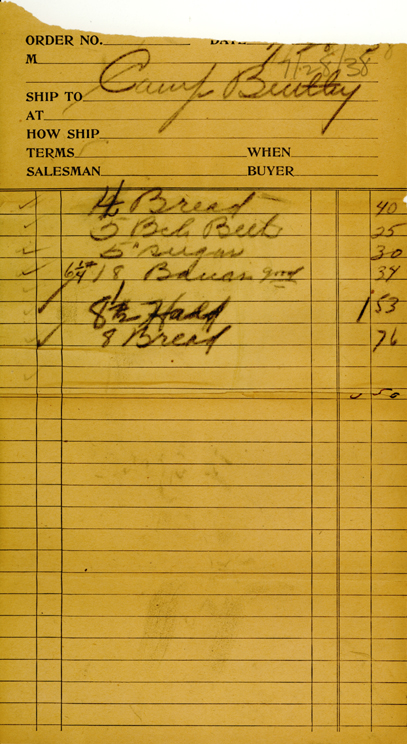 ORDER NO. DATE
M 7/28/38
Camp Bentley
SHIP TO
AT
HOW SHIP
TERMS WHEN
SALESMAN BUYER
4 Bread 40
5 Bch Beets 25
5# sugar 30
6 1/4 18 Bananas 34
8 1/2 Hadd 1 53
8 Bread 76
50